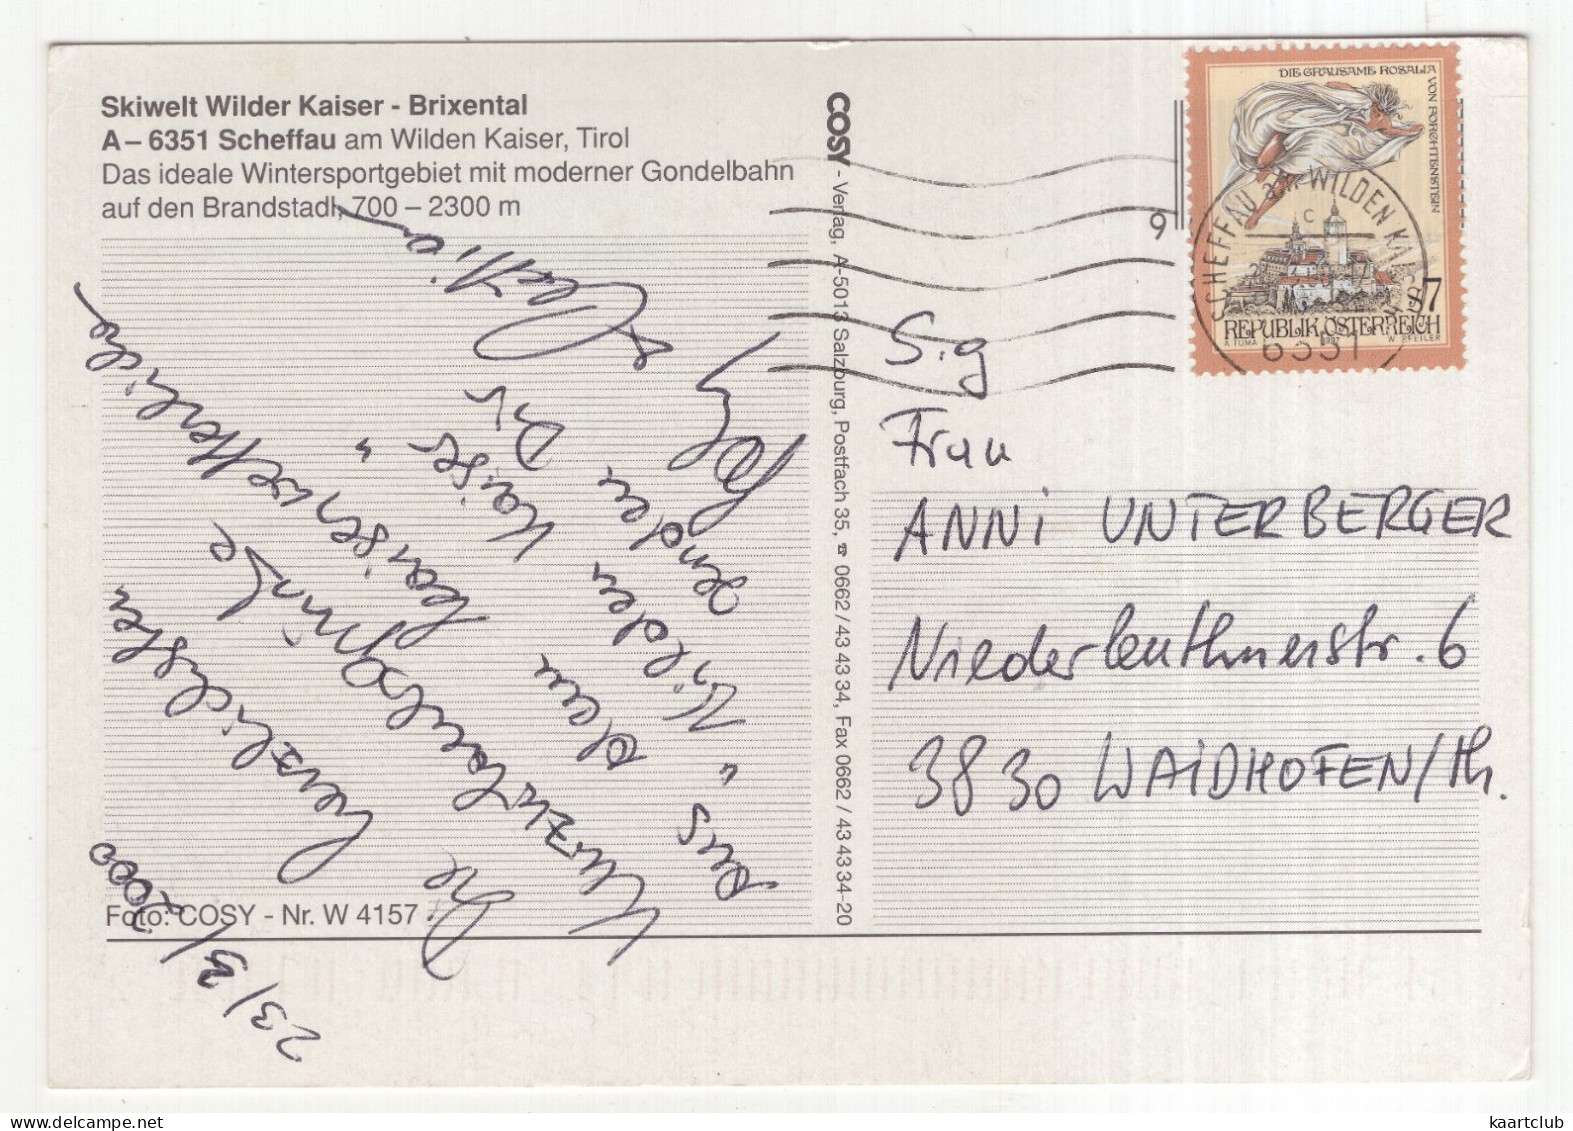 Skiwelt Wilder Kaiser - Brixental
A – 6351 Scheffau am Wilden Kaiser, Tirol
Das ideale Wintersportgebiet mit moderner Gondelbahn
auf den Brandstadl, 700 – 2300 m
23/3/2000
Die herzlichsten
Kurzurlaub
kaiserwetterliche
aus dem
"Wilden Kaiser"
senden Dir
Foto: COSY - Nr. W 4157
COSY - Verlag, A-5013 Salzburg, Postfach 35, ☎ 0662 / 43 43 34, Fax 0662 / 43 43 34-20
DIE GRAUSAME ROSALIA
VON FORCHTENSTEIN
S7
REPUBLIK ÖSTERREICH
A. TUMA 1997 W. PFEILER
SCHEFFAU am WILDEN KAISER
c
6351
9
S.g
Frau
ANNi UNTERBERGER
Niederleuthnerstr. 6
3830 WAiDHOFEN/Th.
kaartclub